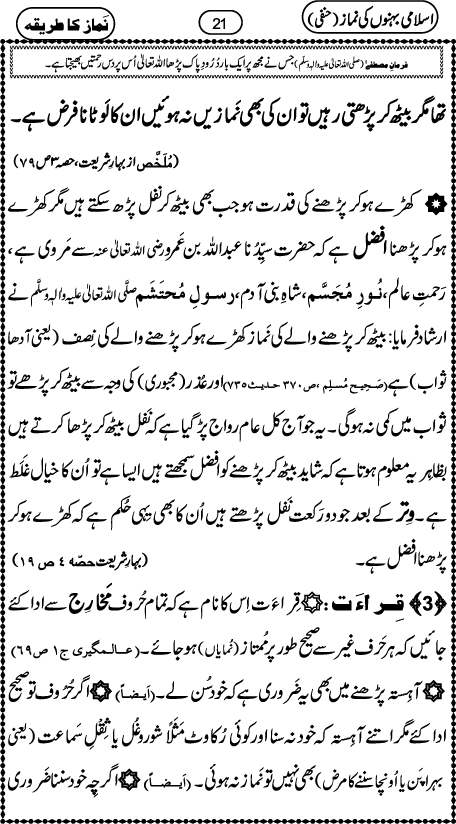 اسلامی بہنوں کی نماز (حنفی) 21 نَماز کا طریقہ
فرمانِ مصطفٰے (صلی اللہ تعالیٰ علیہ واٰلہٖ وسلّم) جس نے مجھ پر ایک بار دُرُودِ پاک پڑھا اللہ تعالیٰ اُس پر دس رحمتیں بھیجتا ہے۔
تھا مگر بیٹھ کر پڑھتی رہیں تو ان کی بھی نَمازیں نہ ہوئیں ان کا لوٹانا فرض ہے۔
(مُلَخَّص از بہارِ شریعت، حصہ ۳ ص ۷۹)
کھڑے ہو کر پڑھنے کی قدرت ہو جب بھی بیٹھ کر نفل پڑھ سکتے ہیں مگر کھڑے
ہو کر پڑھنا افضل ہے کہ حضرت سیِّدُنا عبداللہ بن عَمرو رضی اللہ تعالیٰ عنہ سے مَروی ہے،
رَحمتِ عالم، نُورِ مُجَسَّم، شاہِ بنی آدم، رسولِ مُحتَشَم صلَّی اللہ تعالیٰ علیہ واٰلہٖ وسلَّم نے
ارشاد فرمایا: بیٹھ کر پڑھنے والے کی نَماز کھڑے ہو کر پڑھنے والے کی نِصف (یعنی آدھا
ثواب) ہے (صَحِیح مُسلِم، ص ۳۷۰ حدیث ۷۳۵) اور عُذر (مجبوری) کی وجہ سے بیٹھ کر پڑھے تو
ثواب میں کمی نہ ہوگی۔ یہ جو آج کل عام رواج پڑ گیا ہے کہ نَفل بیٹھ کر پڑھا کرتے ہیں
بظاہر یہ معلوم ہوتا ہے کہ شاید بیٹھ کر پڑھنے کو افضل سمجھتے ہیں ایسا ہے تو اُن کا خیال غَلَط
ہے۔ وِتر کے بعد جو دو رَکعت نَفل پڑھتے ہیں اُن کا بھی یہی حُکم ہے کہ کھڑے ہو کر
پڑھنا افضل ہے۔ (بہارِ شریعت حصّہ ٤ ص ۱۹)
﴿3﴾ قِراءَت: قِراءَت اِس کا نام ہے کہ تمام حُروف مَخارِج سے ادا کئے
جائیں کہ ہر حَرف غیر سے صحیح طور پر مُمتاز (نُمایاں) ہو جائے۔ (عالمگیری ج ۱ ص ٦۹)
آہستہ پڑھنے میں بھی یہ ضَروری ہے کہ خود سُن لے۔ (اَیضاً) اگر حُرُوف تو صحیح
ادا کئے مگر اتنے آہستہ کہ خود نہ سنا اور کوئی رُکاوٹ مَثَلاً شور و غُل یا ثِقلِ سَماعت (یعنی
بہرا پن یا اُونچا سننے کا مرض) بھی نہیں تو نَماز نہ ہوئی۔ (اَیضاً) اگرچِہ خود سننا ضَروری